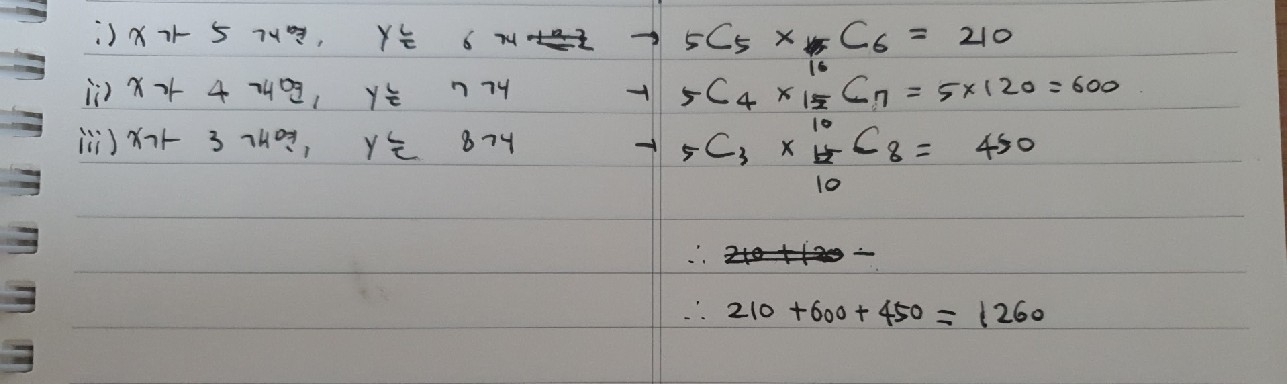 i) x가 5개면, y는 6개 → ₅C₅ × ₁₀C₆ = 210
ii) x가 4개면, y는 7개 → ₅C₄ × ₁₀C₇ = 5×120 = 600
iii) x가 3개면, y는 8개 → ₅C₃ × ₁₀C₈ = 450
∴ 210 + 120 =
∴ 210 + 600 + 450 = 1260